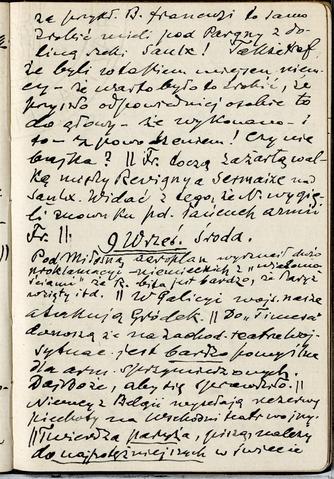 za przykł. B. francuzi to samo
zrobić mieli pod Pargny z do-
liną rzeki Saulx!
że byli w takiem miejscu niem-
cy - że warto było to zrobić, że
przyszło odpowiedniej osobie to
do głowy - że wykonano - i
to - z powodzeniem! Czy nie
bajka? || Fr. toczą zażartą wal-
kę między Revigny a Sermaize nad
Saulx. Widać z tego, że N. wygię-
li znowu ku pd. łańcuch armii
Fr. ||
9 Wrześ. Środa.
Pod Miłosną aeroplan wyrzucił dużo
proklamacyi - niemieckich z "wiadomo-
ściami" że R. bita jest bardzo, że Paryż
wzięty itd. || W Galicyi wojs. nasze
atakują Gródek. || Do "Timesa"
donoszą że na zachod. teatrze woj-
sytuac. jest bardzo pomyślna
dla arm. sprzymierzonych.
Daj Boże, aby się sprawdziło. ||
Niemcy z Belgii wysyłają rezerwy
piechoty na wschodni teatr wojny.
|| Twierdza paryska, piszą, należy
do najpotężniejszych w świecie